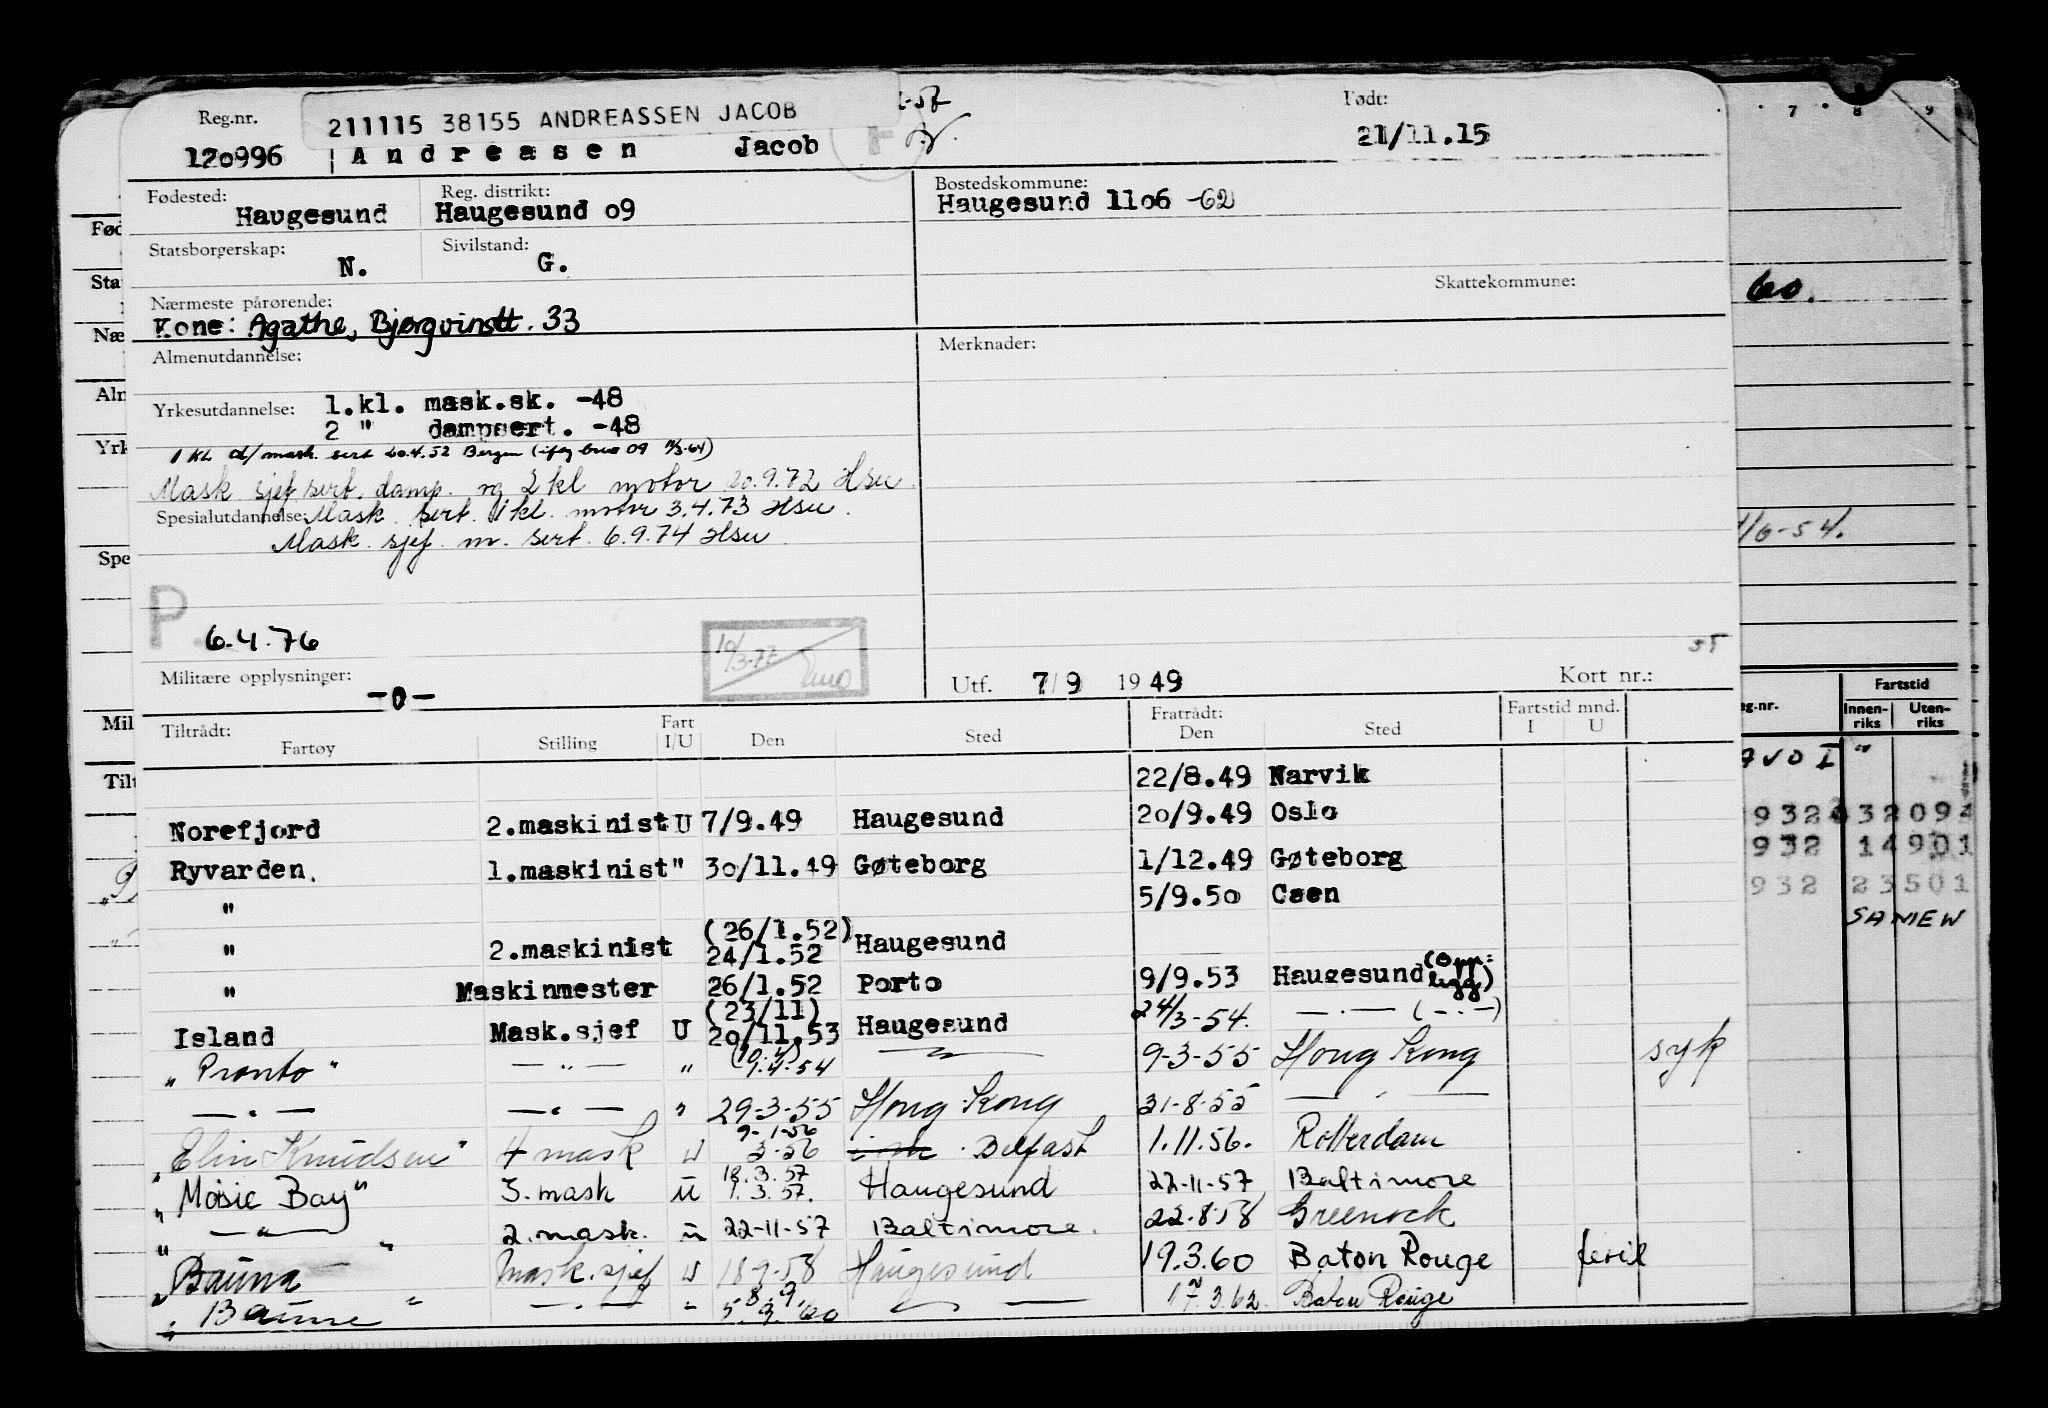 Reg.nr. 211115 38155 ANDREASSEN JACOB Født:
120996 Andreasen Jacob 21/11.15
Fødested: Haugesund Reg. distrikt: Haugesund 09 Bostedskommune: Haugesund 1106 -62
Statsborgerskap: N. Sivilstand: G.
Skattekommune:
Nærmeste pårørende:
Kone: Agathe, Bjørgvinstt. 33
Almenutdannelse: Merknader:
Yrkesutdannelse: 1.kl. mask.sk. -48
2 " dampsert. -48
1 kl d/mask. sert 20.4.52 Bergen
Mask sjef sert. damp. og 2 kl motor 20.9.72 Hsu.
Spesialutdannelse: Mask. sert. 1 kl. motor 3.4.73 Hsu.
Mask. sjef. m. sert. 6.9.74 Hsu.
P. 6.4.76
10/3-77
Militære opplysninger: -0- Utf. 7/9 1949 Kort nr.:
Tiltrådt: Fart Fratrådt: Fartstid mnd.
Fartøy Stilling I/U Den Sted Den Sted I U
22/8.49 Narvik
Norefjord 2.maskinist U 7/9.49 Haugesund 20/9.49 Oslo
Ryvarden. 1.maskinist " 30/11.49 Gøteborg 1/12.49 Gøteborg
" 5/9.50 Caen
" 2.maskinist (26/1.52) 24/1.52 Haugesund
" Maskinmester 26/1.52 Porto 9/9.53 Haugesund (Opp: legg)
Island Mask.sjef U (23/11) 20/11.53 Haugesund 24/3-54. — . — ( — . — )
"Pronto" — " — " (10.4) 9.4.54 — " — 9-3-55 Hong Kong syk
— " — — " — " 29-3-55 Hong Kong 31-8-55 — " —
"Elin Knudsen" 4 mask U 9-1-56 3-56 Belfast 1.11.56. Rotterdam
"Mosie Bay" 3. mask U 18.3.57 1.3.57. Haugesund 22-11-57 Baltimore
" — " — " 2. mask. U 22-11-57 Baltimore. 22-8-58 Greenock
"Bauna Mask. sjef U 18-9-58 Haugesund 19.3.60 Baton Rouge ferie
"Baune" — " — " 8.9. 5.9.60 — " — 17.3.62. Baton Rouge
7 8 9
60.
4/6-54.
Fartstid
Innen-riks Uten-riks
932 32092
932 14901
932 23501
SANIEW